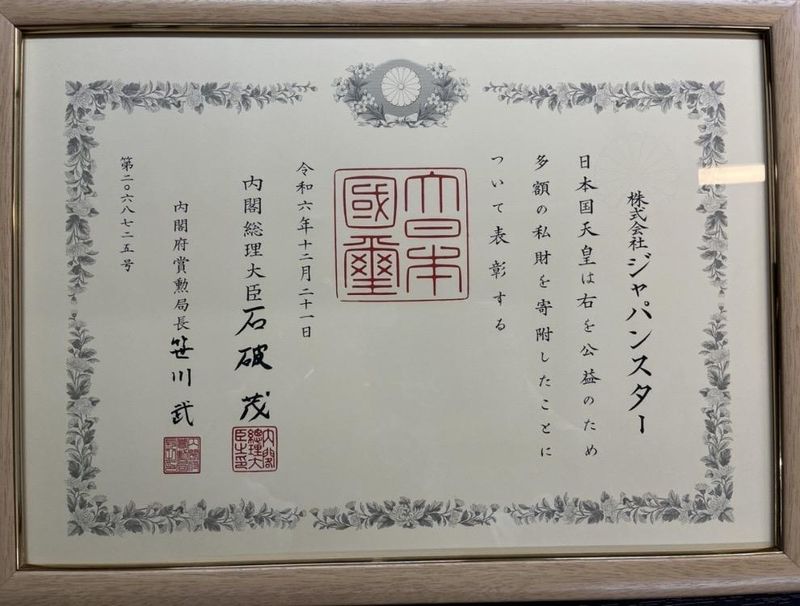 株式会社ジャパンスター
日本国天皇は右を公益のため
多額の私財を寄附したことに
ついて表彰する
大日本
國璽
令和六年十二月二十一日
内閣総理大臣石破茂
内閣総理大
臣之印
内閣府賞勲局長笹川武
第二〇六八七二五号